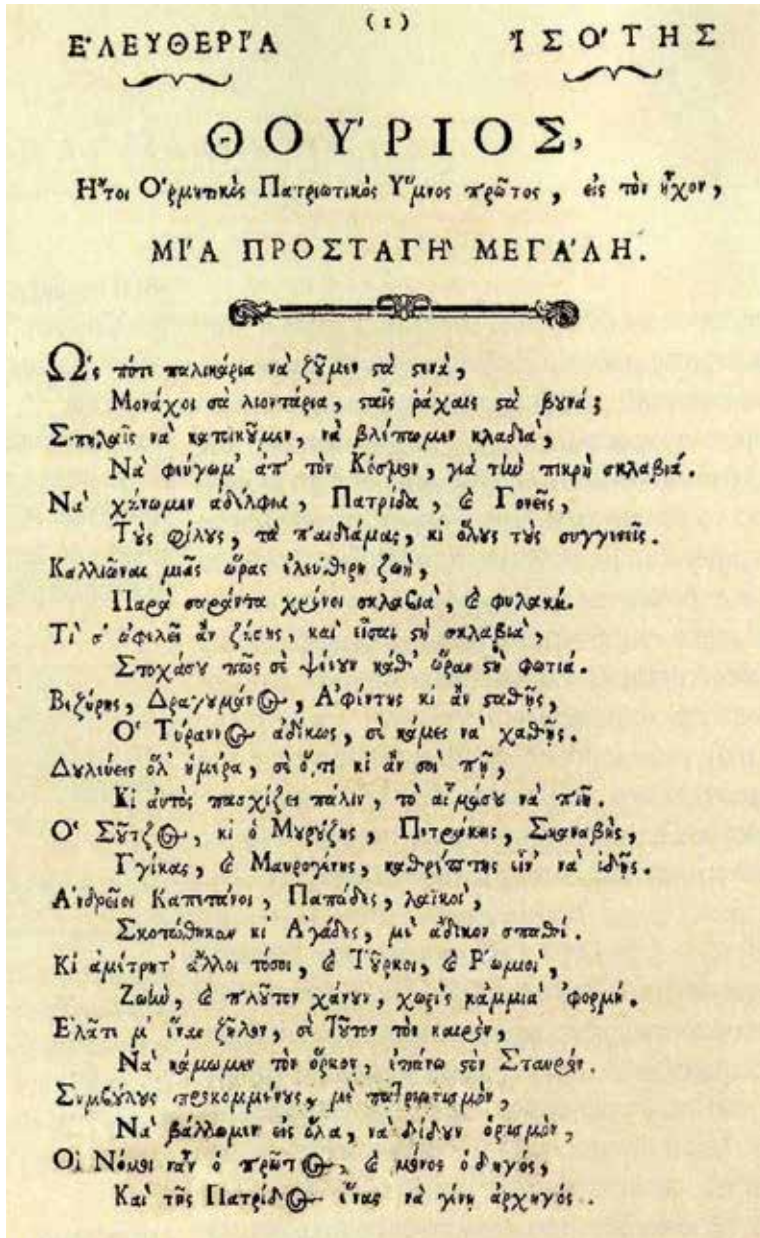 (1)
Ε᾿ΛΕΥΘΕΡΙ´Α ἸΣΟ´ΤΗΣ
ΘΟΥ´ΡΙΟΣ,
Ητοι Ὁρμητικὸς Πατριωτικὸς Ὕμνος πρῶτος, εἰς τὸν ἦχον,
ΜΙ´Α ΠΡΟΣΤΑΓΗ` ΜΕΓΑ´ΛΗ.
Ὡς πότε παλικάρια νὰ ζοῦμεν στὰ στενὰ,
Μονάχοι σὰ λιοντάρια, σταῖς ράχαις στὰ βουνά;
Σπηλαῖς νὰ κατοικοῦμεν, νὰ βλέπωμεν κλαδιὰ,
Νὰ φεύγωμ᾿ ἀπ᾿ τὸν Κόσμον, γιὰ τὴν πικρὴ σκλαβιά.
Νὰ χάνωμεν ἀδέλφια, Πατρίδα, ϗ Γονεῖς,
Τοὺς φίλους, τὰ παιδιάμας, κι ὅλους τοὺς συγγενεῖς.
Καλλιῶναι μιᾶς ὥρας ἐλεύθερη ζωὴ,
Παρὰ σαράντα χρόνοι σκλαβιὰ, ϗ φυλακή.
Τί σ᾿ ὠφελεῖ ἂν ζήσῃς, καὶ εἶσαι στὴ σκλαβιὰ,
Στοχάσου πῶς σὲ ψένουν κάθ᾿ ὥραν στὴ φωτιά.
Βεζύρης, Δραγουμάνος, Ἀφέντης κι ἂν σταθῇς,
Ὁ Τύραννος ἀδίκως, σὲ κάμει νὰ χαθῇς.
Δουλεύεις ὅλ᾿ ἡμέρα, σὲ ὅ,τι κι ἂν σοὶ πῇ,
Κι αὐτὸς πασχίζει πάλιν, τὸ αἷμάσου νὰ πιῇ.
Ὁ Σοῦτζος, κι ὁ Μουρούζης, Πετράκης, Σκαναβὴς,
Γγίκας, ϗ Μαυρογένης, καθρέπτης εἶν᾿ νὰ ἰδῇς.
Ἀνδρεῖοι Καπετάνοι, Παπάδες, λαϊκοὶ,
Σκοτώθηκαν κι Ἀγάδες, μὲ ἄδικον σπαθί.
Κι ἀμέτρητ᾿ ἄλλοι τόσοι, ϗ Τοῦρκοι, ϗ Ῥωμιοὶ,
Ζωὴν, ϗ πλοῦτον χάνουν, χωρὶς κἀμμιὰ ᾿φορμή.
Ἐλᾶτε μ᾿ ἕναν ζῆλον, σὲ Τοῦτον τὸν καιρὸν,
Νὰ κάμωμεν τὸν ὅρκον, ἐπάνω στὸν Σταυρόν.
Συμβούλους προκομμένους, μὲ πατριωτισμὸν,
Νὰ βάλλωμεν εἰς ὅλα, νὰ δίδουν ὁρισμὸν,
Οἱ Νόμοι νἆν ὁ πρῶτος, ϗ μόνος ὁδηγός,
Καὶ τῆς Πατρίδος ἕνας νὰ γένῃ ἀρχηγός.